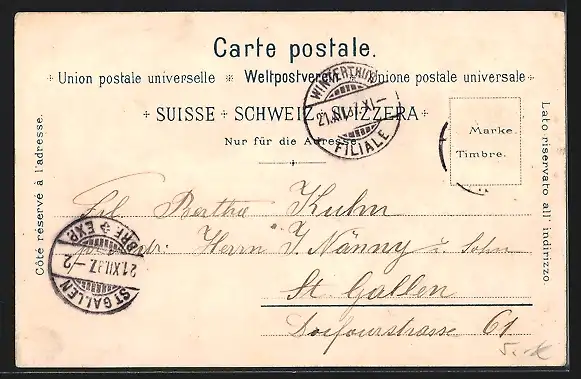 Carte postale.
Union postale universelle Weltpostverein Unione postale universale
SUISSE SCHWEIZ SVIZZERA
Nur für die Adresse.
Côté réservé à l'adresse.
Lato riservato all' indirizzo.
Marke.
Timbre.
WINTERTHUR
21.XII.97.XI-
FILIALE
Frl Bertha Kuhn
Herrn J. Nänny & Sohn
St. Gallen
Dufourstrasse 61
BRF EXP.
21.XII.97.-2
ST GALLEN